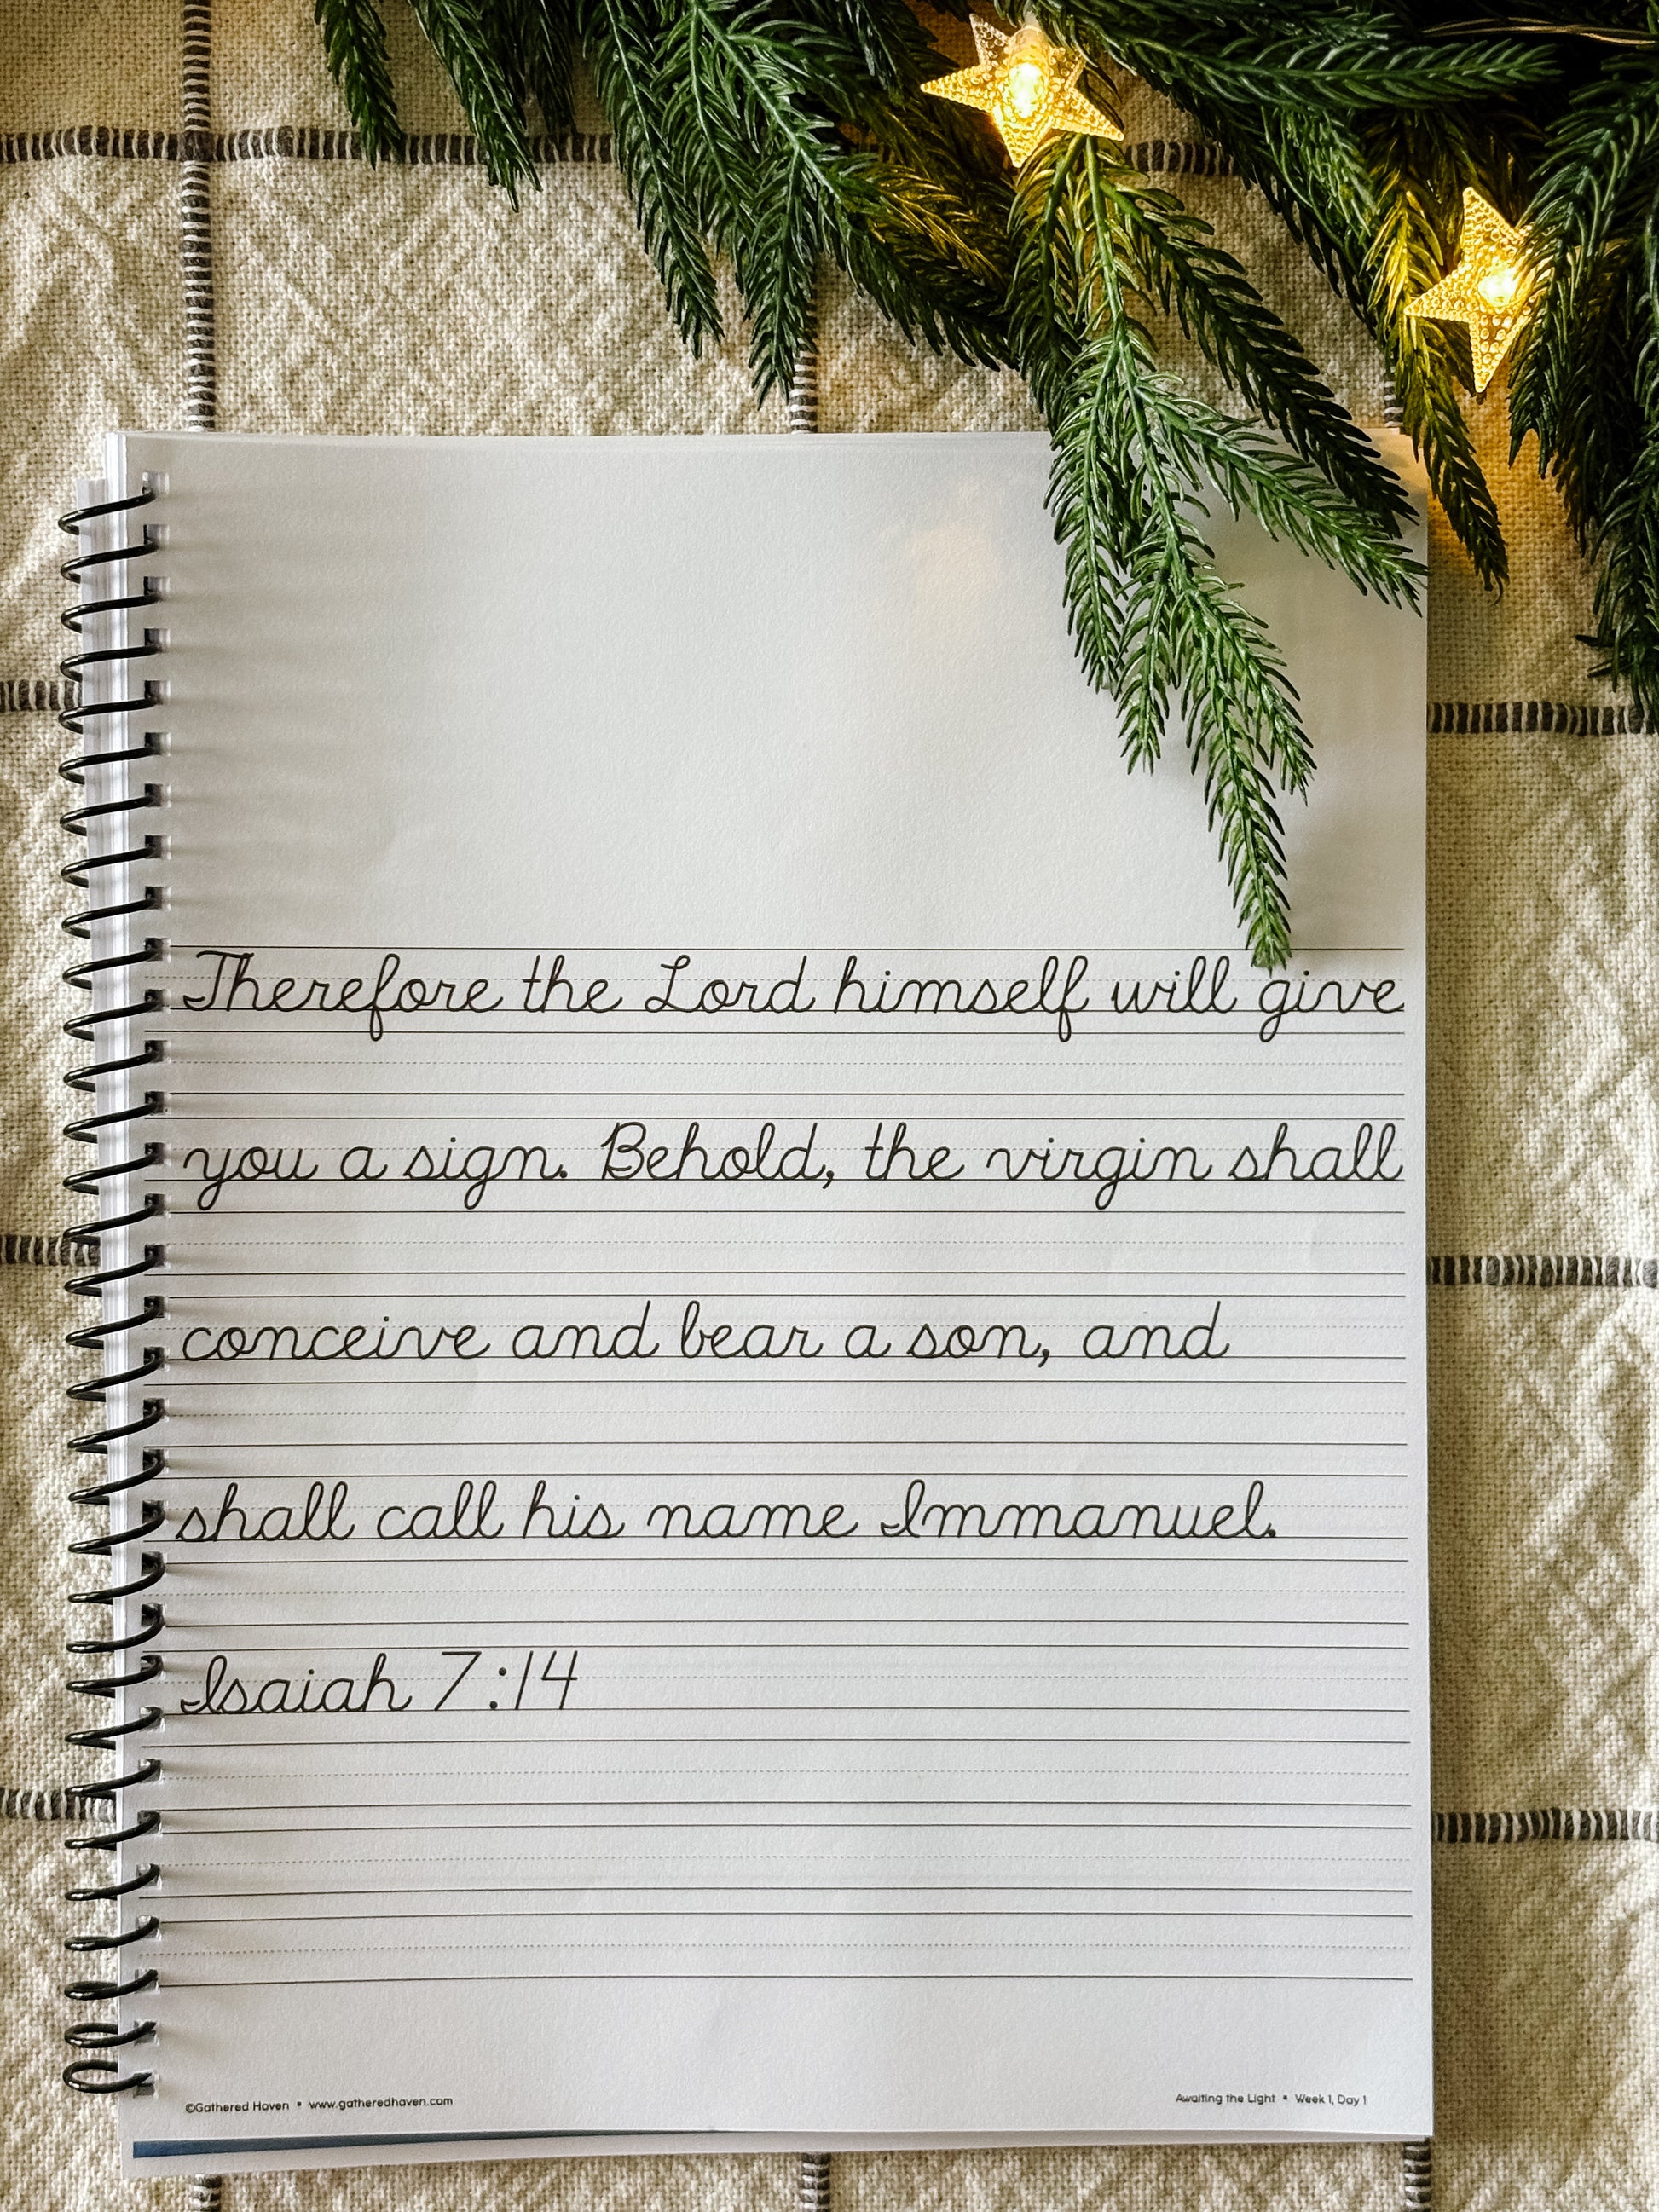 Therefore the Lord himself will give
you a sign. Behold, the virgin shall
conceive and bear a son, and
shall call his name Immanuel.
Isaiah 7:14
©Gathered Haven ▪ www.gatheredhaven.com
Awaiting the Light ▪ Week 1, Day 1